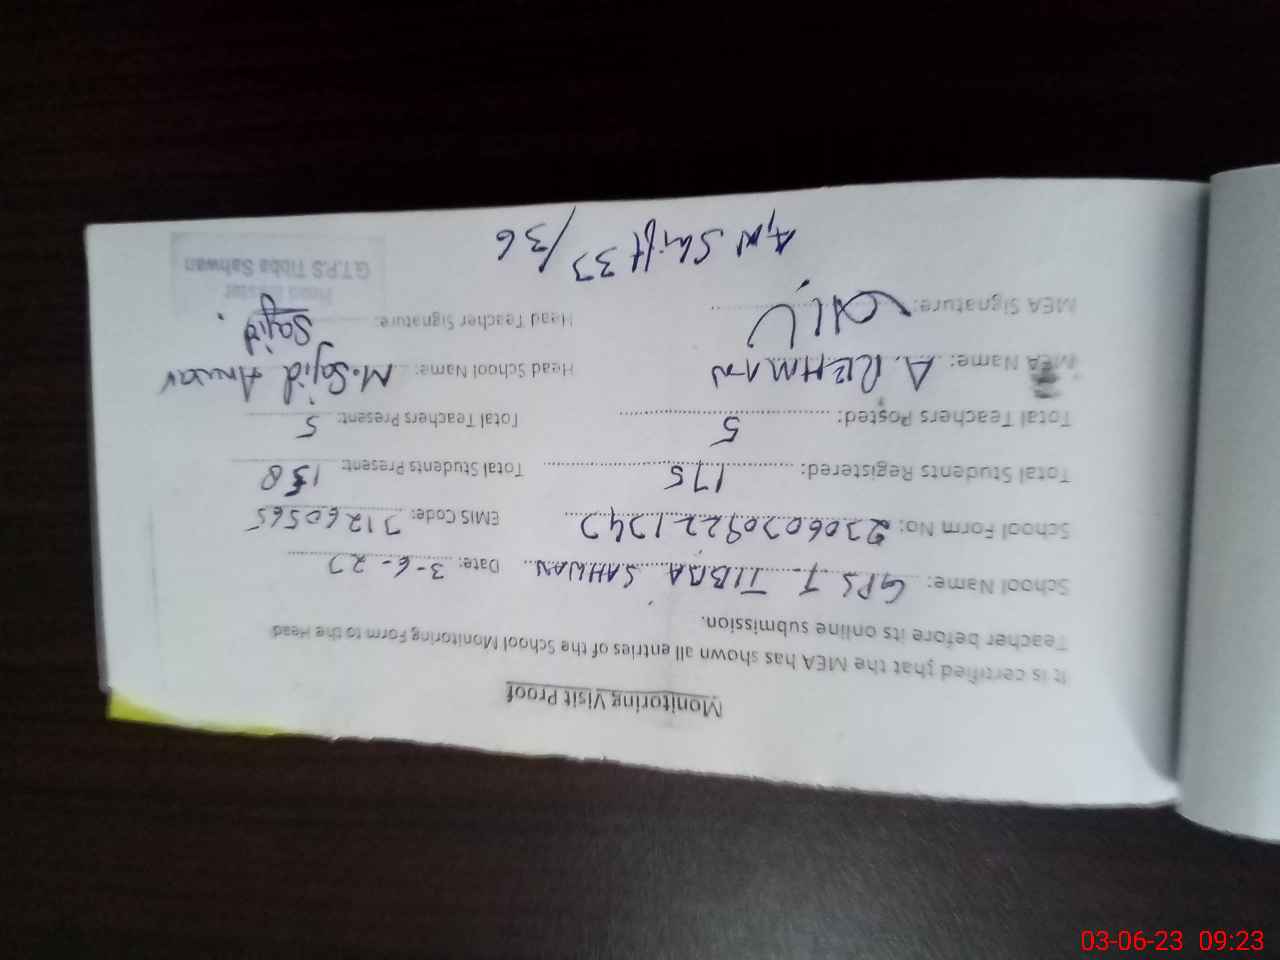 Monitoring Visit Proof
It is certified that the MEA has shown all entries of the School Monitoring Form to the Head
Teacher before its online submission.
School Name: GPS T. TIBBA SAHWAN Date: 3-6-23
School Form No: 23060309221343 EMIS Code: 31260565
Total Students Registered: 175 Total Students Present: 158
Total Teachers Posted: 5 Total Teachers Present: 5
MEA Name: A. REHMAN Head School Name: M. Sajid Anwar
MEA Signature: Head Teacher Signature: Sajid
Head Master
G.T.P.S Tibba Sahwan
A/N Shift 33/36
03-06-23 09:23